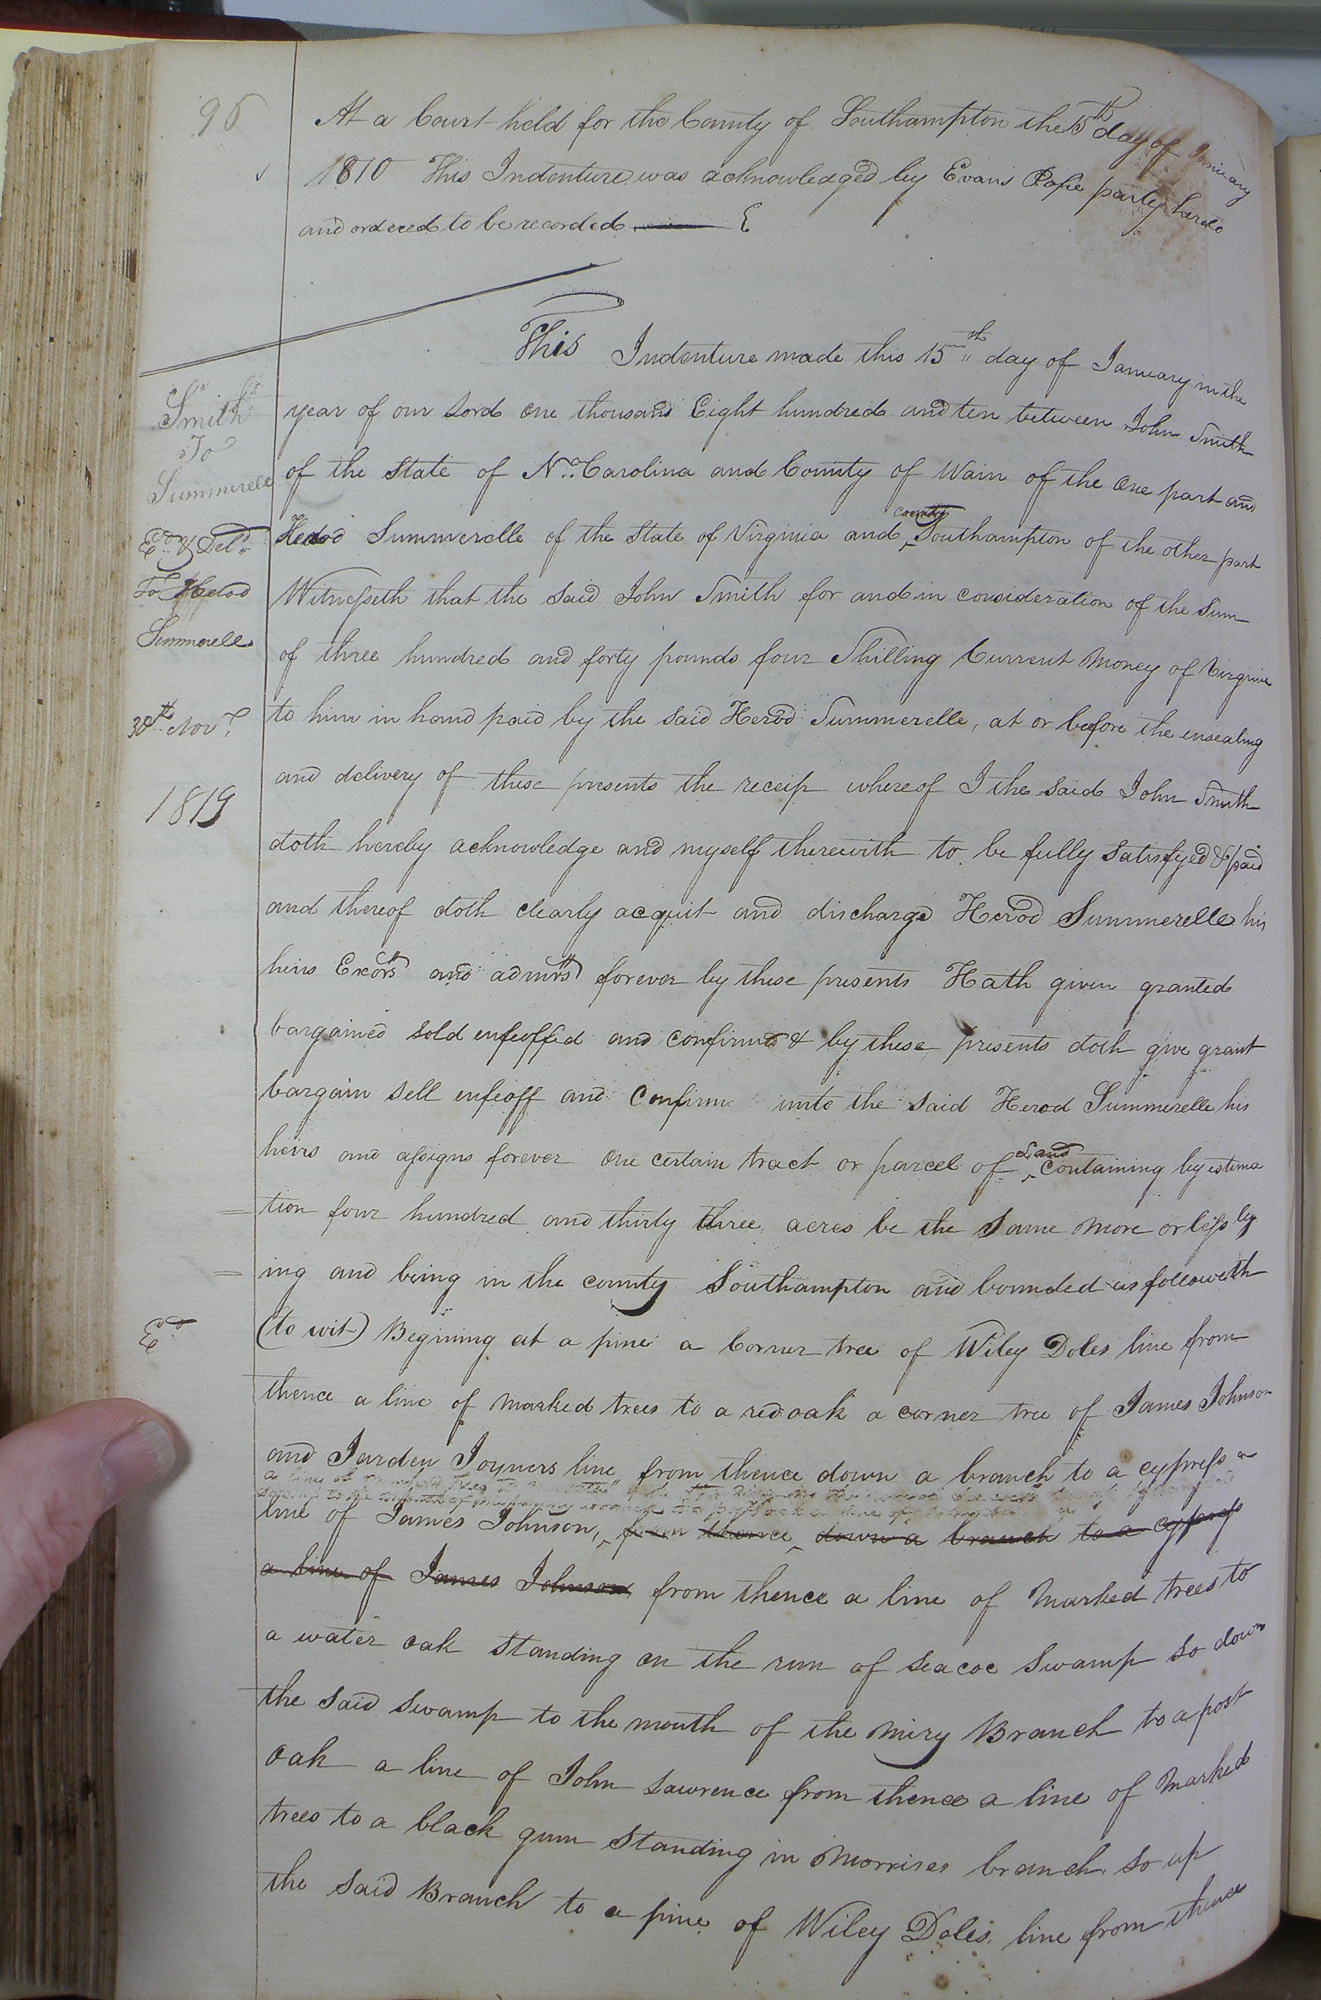 96
At a Court held for the County of Southampton the 15th day of January
1810 This Indenture was acknowledged by Evans Pope party hereto
and ordered to be recorded
This Indenture made this 15th day of January in the
year of our Lord one thousand Eight hundred and ten between John Smith
of the State of No. Carolina and County of Wain of the one part and
Herod Summerelle of the State of Virginia and county Southampton of the other part
Witnesseth that the said John Smith for and in consideration of the Sum
of three hundred and forty pounds four Shilling Current Money of Virginia
to him in hand paid by the said Herod Summerelle, at or before the ensealing
and delivery of these presents the receip whereof I the said John Smith
doth hereby acknowledge and myself therewith to be fully satisfyed & paid
and thereof doth clearly acquit and discharge Herod Summerelle his
heirs Exors and admrs forever by these presents Hath given granted
bargained sold enfeoffed and confirmed & by these presents doth give grant
bargain sell enfeoff and Confirm unto the said Herod Summerelle his
heirs and assigns forever one certain tract or parcel of Land containing by estima
tion four hundred and thirty three acres be the same more or less ly
ing and being in the county Southampton and bounded as followeth
(to wit) Begining at a pine a Corner tree of Wiley Doles line from
thence a line of marked trees to a red oak a corner tree of James Johnson
and Jarden Joyners line from thence down a branch to a cypress a
line of James Johnson, from thence down a branch to a cypress
a line of James Johnson from thence a line of marked trees to
a water oak standing on the run of seacoc swamp so down
the said swamp to the mouth of the miry Branch to a post
oak a line of John Lawrence from thence a line of marked
trees to a black gum standing in Morrises branch so up
the said Branch to a pine of Wiley Doles line from thence
Smith
To
Summerell
Ed. & Deld.
To Herod
Summerell
30th Novr.
1819
Ed.